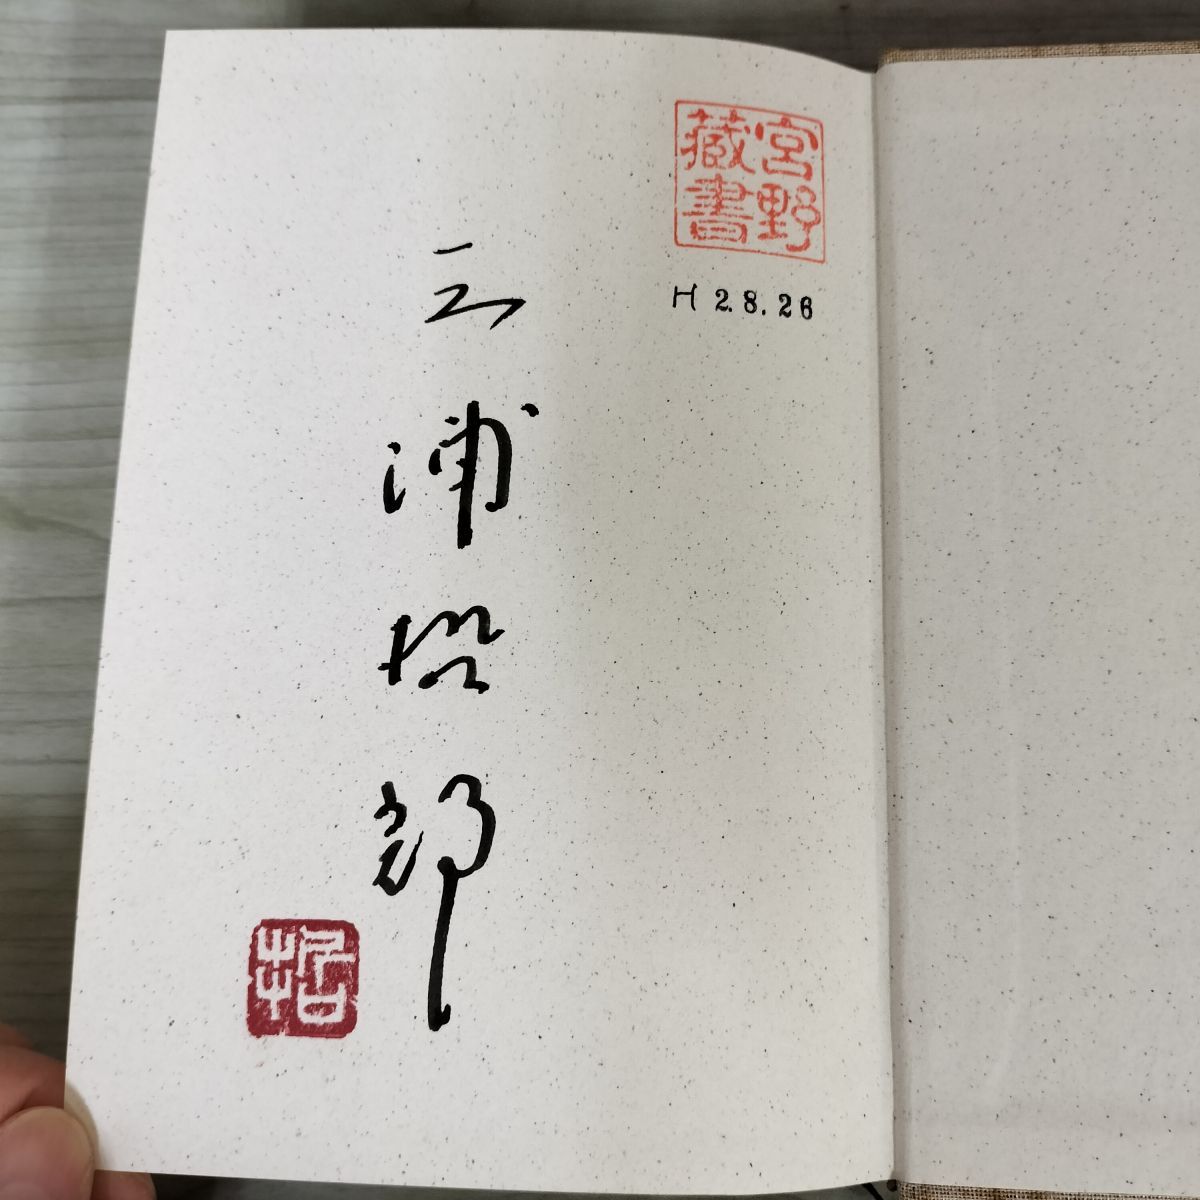 宮野
藏書
H 2.8.26
三浦哲郎
哲